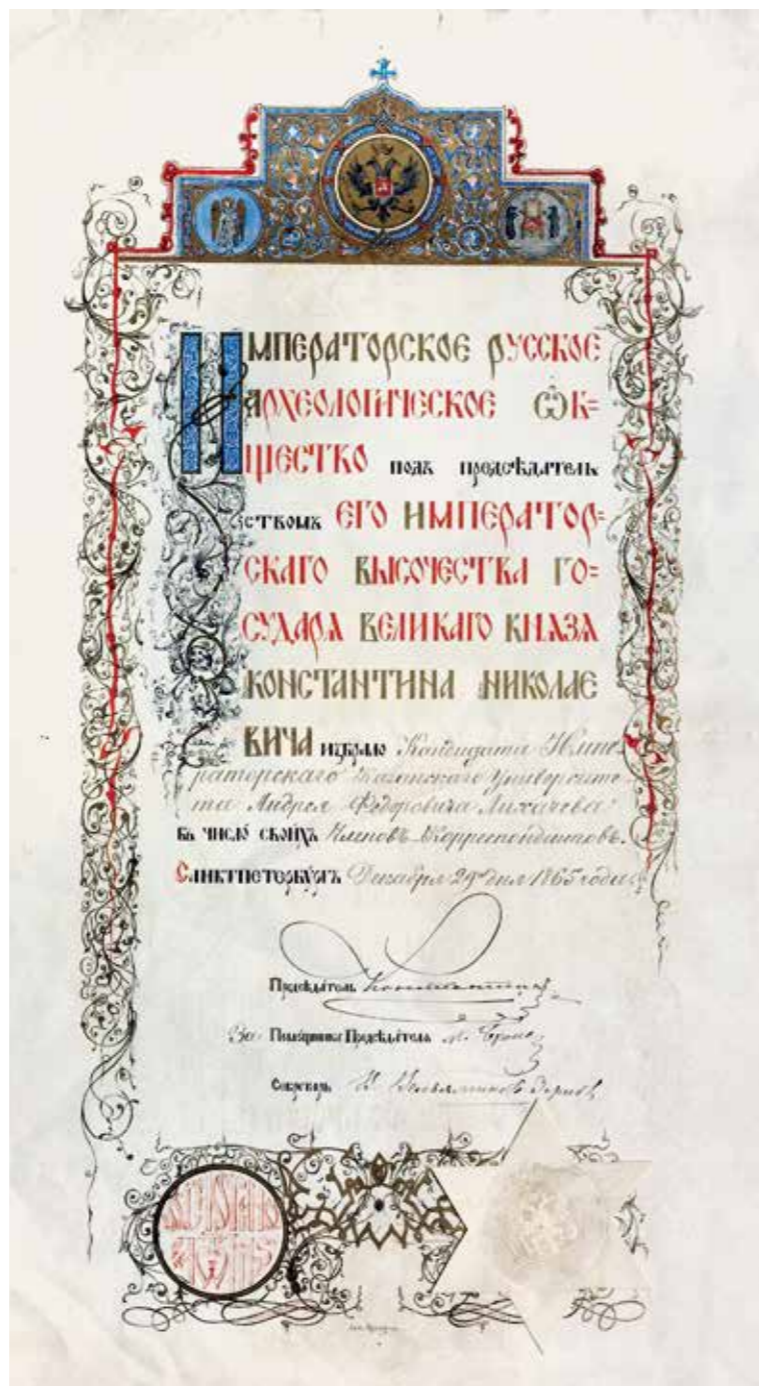 Императорское русское
археологическое ѡб=
щество подъ предсѣдатель
ствомъ ЕГО ИМПЕРАТОР=
СКАГО ВЫСОЧЕСТВА ГО=
СУДАРЯ ВЕЛИКАГО КНѦЗѦ
КОНСТАНТИНА НИКОЛАЕ
ВИЧА избрало Кандидата Импе
раторскаго Казанскаго Университе
та Андрея Ѳедоровича Лихачева
въ число своихъ Членовъ-Корреспондентовъ.
Санктпетербургъ Декабря 29го дня 1865 года
Предсѣдатель Константинъ
За Помощника Предсѣдателя
Секретарь В. Вельяминовъ-Зерновъ